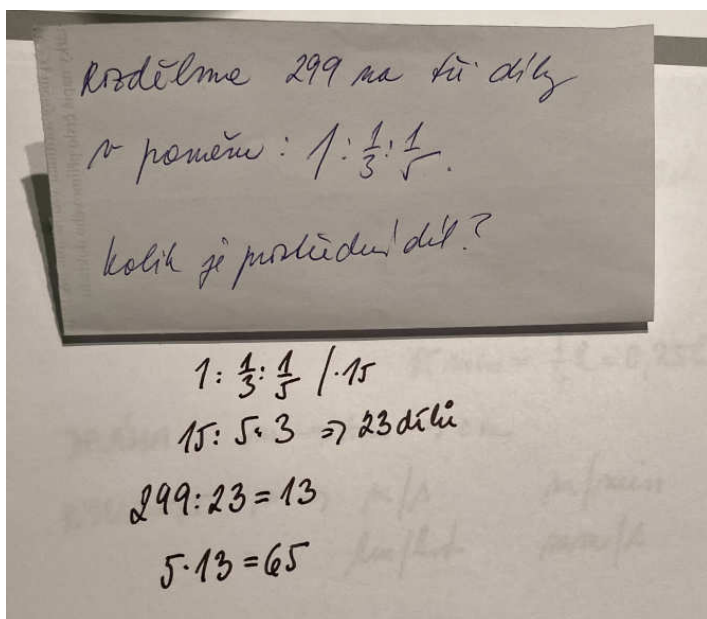 Rozdělme 299 na tři díly
v poměru: 1 : 1/3 : 1/5.
Kolik je prostřední díl?
1 : 1/3 : 1/5 /·15
15 : 5 : 3 => 23 dílů
299 : 23 = 13
5 · 13 = 65